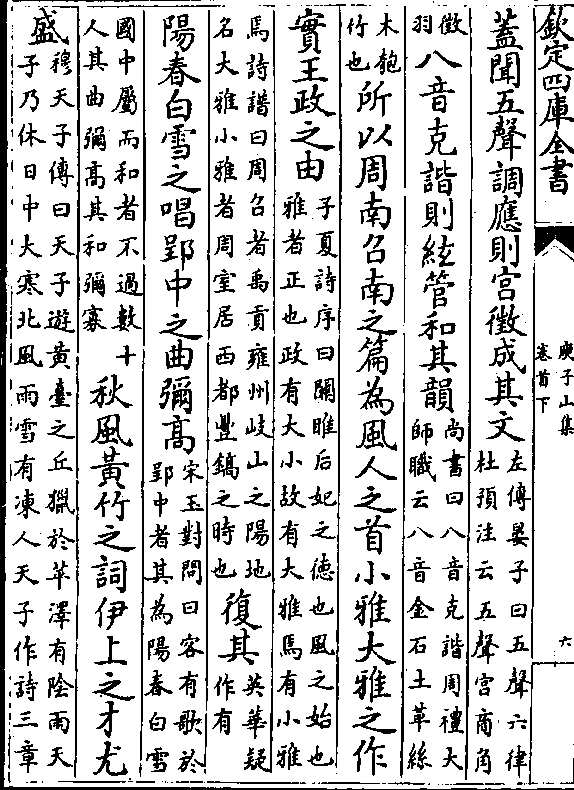 欽定四庫全書
庾子山集
卷首下
六
蓋聞五聲調應則宫徵成其文
左傳晏子曰五聲六律
杜預注云五聲宫商角
徵
羽
八音克諧則絃管和其韻
尚書曰八音克諧周禮大
師職云八音金石土革絲
木匏
竹也
所以周南召南之篇為風人之首小雅大雅之作
實王政之由
子夏詩序曰關睢后妃之德也風之始也
雅者正也政有大小故有大雅焉有小雅
焉詩譜曰周召者禹貢雍州岐山之陽地
名大雅小雅者周室居西都豐鎬之時也
復其
英華疑
作有
陽春白雪之唱郢中之曲彌髙
宋玉對問曰客有歌於
郢中者其為陽春白雪
國中屬而和者不過數十
人其曲彌髙其和彌寡
秋風黄竹之詞伊上之才尤
盛
穆天子傳曰天子遊黄臺之丘獵於苹澤有陰雨天
子乃休日中大寒北風雨雪有凍人天子作詩三章